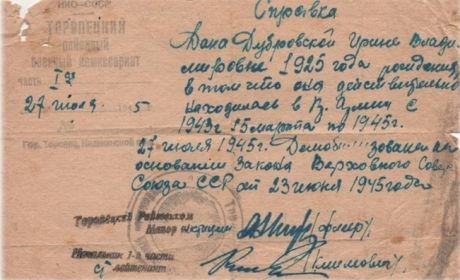 НКО-СССР
Справка
ТОРОПЕЦКИЙ
РАЙОННЫЙ
ВОЕННЫЙ КОМИССАРИАТ
часть I я
27 июля 1945
Гор. Торопец,
Дана Дубровской Ирине Влади
мировне 1925 года рождения,
в том что она действительно
находилась в К. Армии с
1943г 15 марта по 1945г.
27 июля 1945г. Демоб зована на
основании Закона Верховного Совет
Союза ССР от 23 июня 1945 года
Торопецкий Райвоенком
Майор юстиции
Начальник 1-й части
лейтенант (Климович)